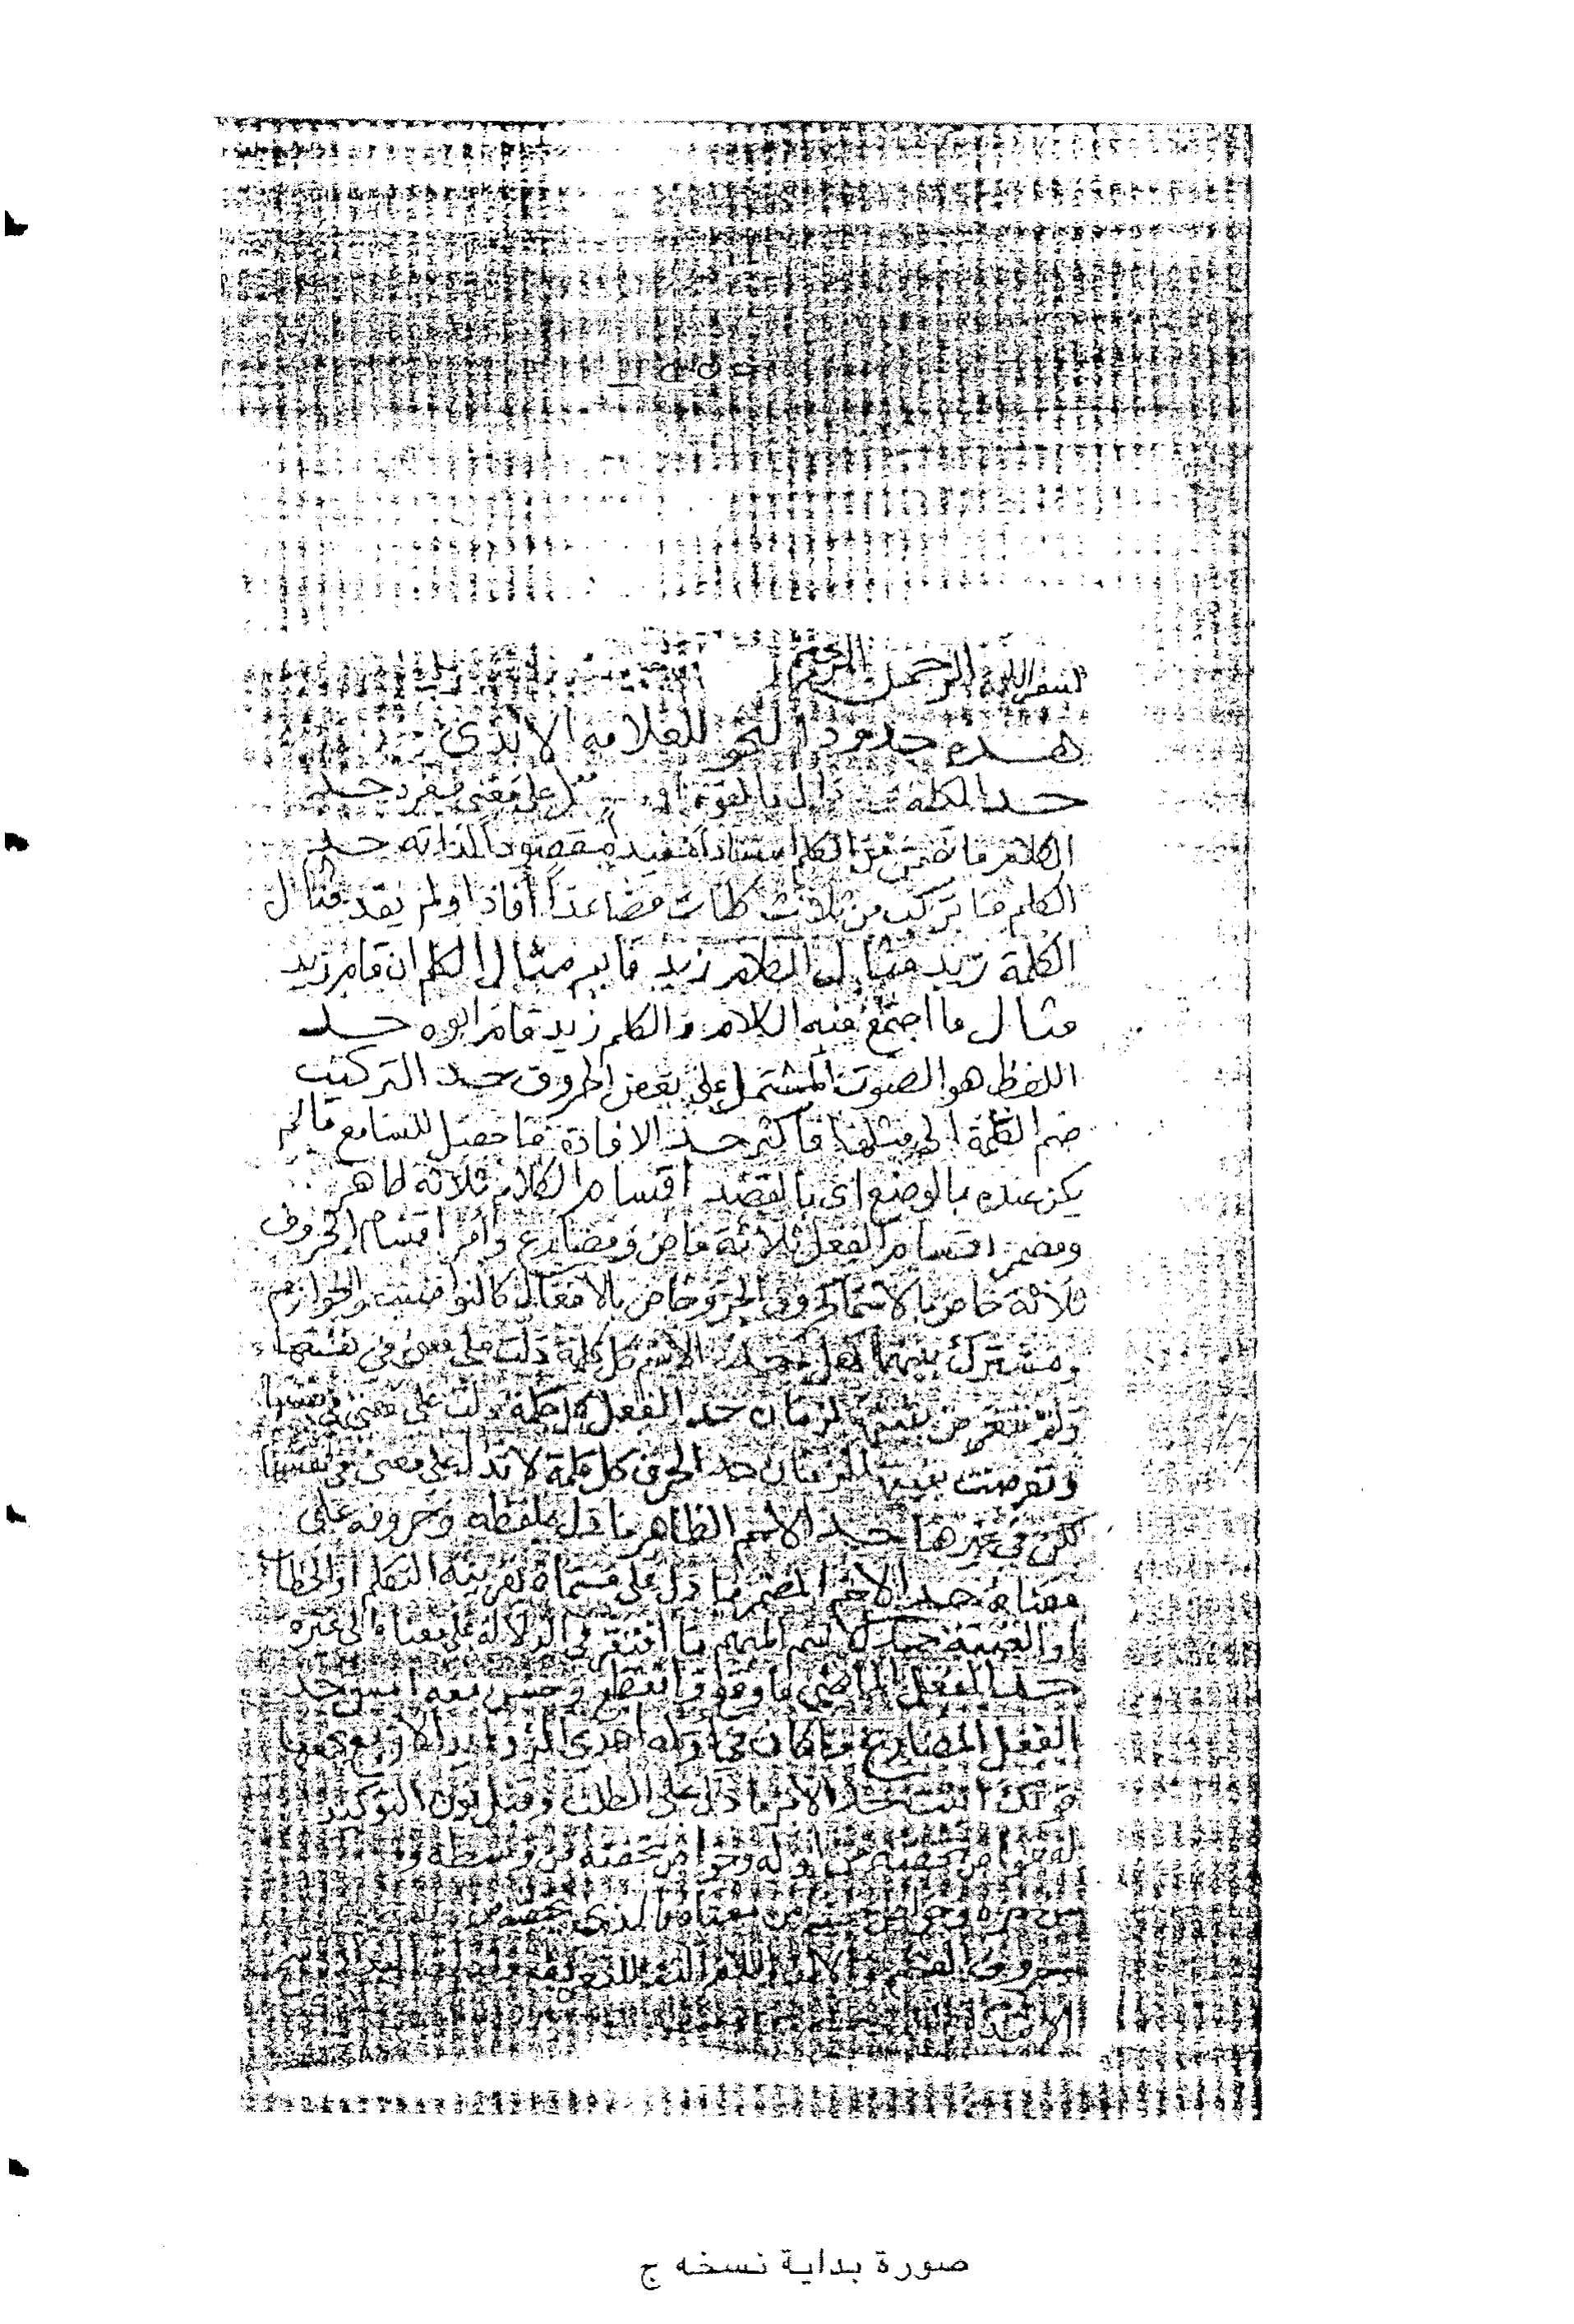 بسم الله الرحمن الرحيم
هذه حدود النحو للعلامة الابدي
حد الكلمة دال بالقوة او على معنى مفرد حد
الكلام ما تضمن من الكلم اسنادا مفيدا مقصودا لذاته حد
الكلم ما تركب من ثلاث كلمات فصاعدا أفاد او لم يفد مثال
الكلمة زيد مثال الكلام زيد قايم مثال الكلم ان قام زيد
مثال ما اجتمع فيه الكلام والكلم زيد قام ابوه حد
اللفظ هو الصوت المشتمل على بعض الحروف حد التركيب
ضم الكلمة الى مثلها فأكثر حد الافادة ما حصل للسامع ما لم
يكن عنده بالوضع اى بالقصد اقسام الكلام ثلاثة ظاهر
ومضمر اقسام الفعل ثلاثة ماض ومضارع وأمر اقسام الحروف
ثلاثة خاص بالاسما كحروف الجر وخاص بالافعال كالنواصب والجوازم
ومشترك بينهما كهل حد الاسم كل كلمة دلت على معنى في نفسها
ولم تتعرض ببنيتها لزمان حد الفعل كل كلمة دلت على معنى في نفسها
وتعرضت ببنيتها للزمان حد الحرف كل كلمة لا تدل على معنى في نفسها
لكن في غيرها حد الاسم الظاهر ما دل بلفظه وحروفه على
معناه حد الاسم المضمر ما دل على مسماه بقرينة التكلم او الخطاب
او الغيبة حد الاسم المبهم ما افتقر في الدلالة على معناه الى غيره
حد الفعل الماضي ما وقع وانقطع وحسن معه امس حد
الفعل المضارع ما كان في اوله احدى الزوايد الاربع يجمعها
قولك انيت حد الامر ما دل على الطلب وقبل نون التوكيد
له خواص تخصه من اوله وخواص تخصه من وسطه
وخواص من معناه فالذي يخصه من
حروف القسم والالف واللام التي للتعريف
صورة بداية نسخه ج